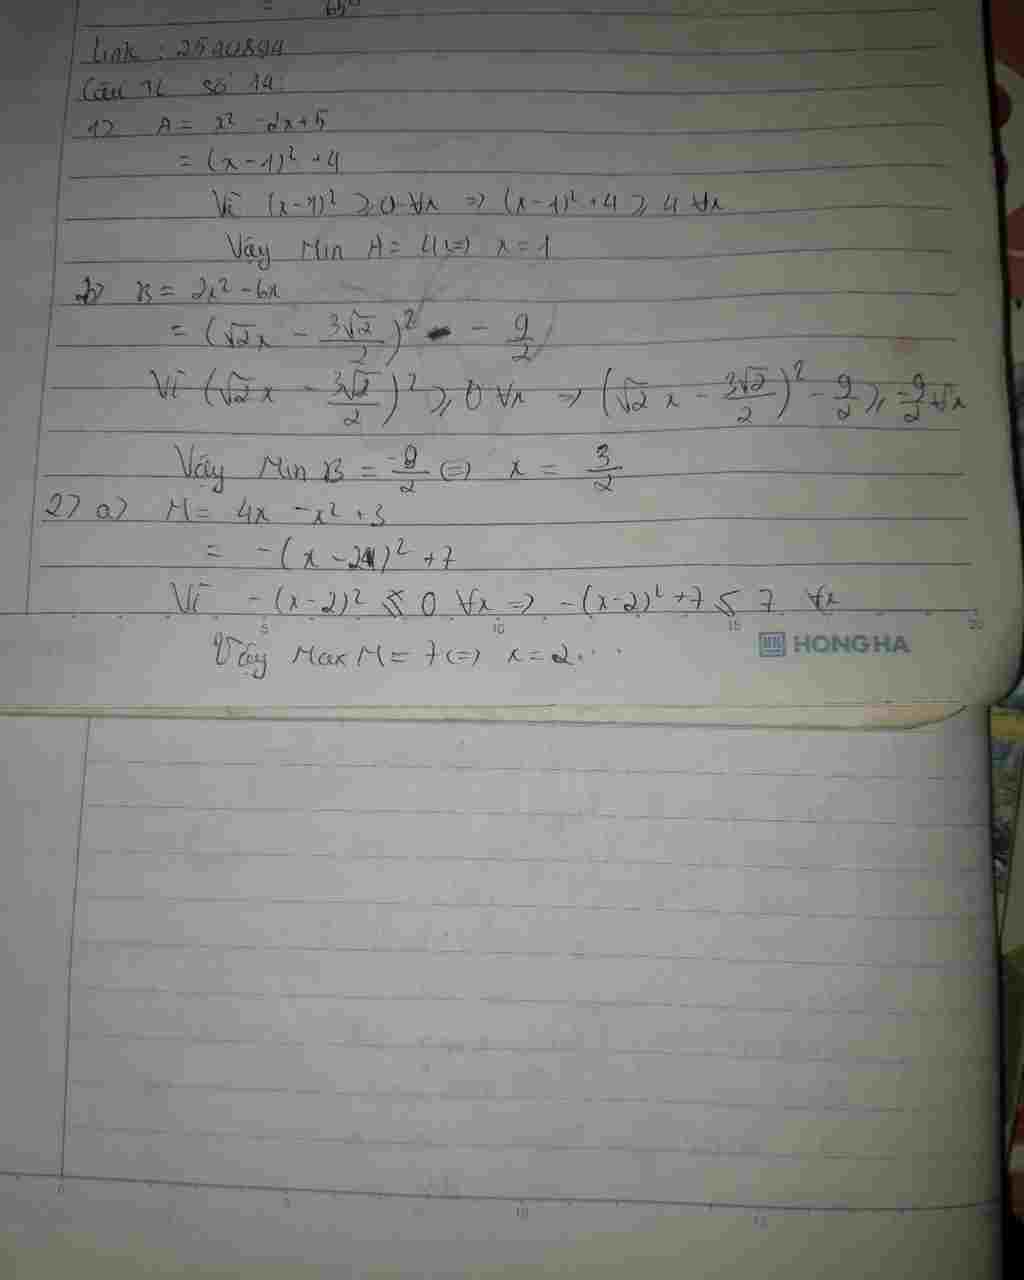 Link : 2590894
Câu TL số 14:
1> A = x² - 2x + 5
= (x - 1)² + 4
Vì (x-1)² ≥ 0 ∀x => (x-1)² + 4 ≥ 4 ∀x
Vậy Min A = 4 <=> x = 1
B = 2x² - 6x
= (√2x - 3√2/2)² - 9/2
Vì (√2x - 3√2/2)² ≥ 0 ∀x => (√2x - 3√2/2)² - 9/2 ≥ -9/2 ∀x
Vậy Min B = -9/2 <=> x = 3/2
2> a> M = 4x - x² + 3
= -(x - 2)² + 7
Vì -(x-2)² ≤ 0 ∀x => -(x-2)² + 7 ≤ 7 ∀x
5 10 15 20
HONG HA
Vậy Max M = 7 <=> x = 2...
0 5 10 15